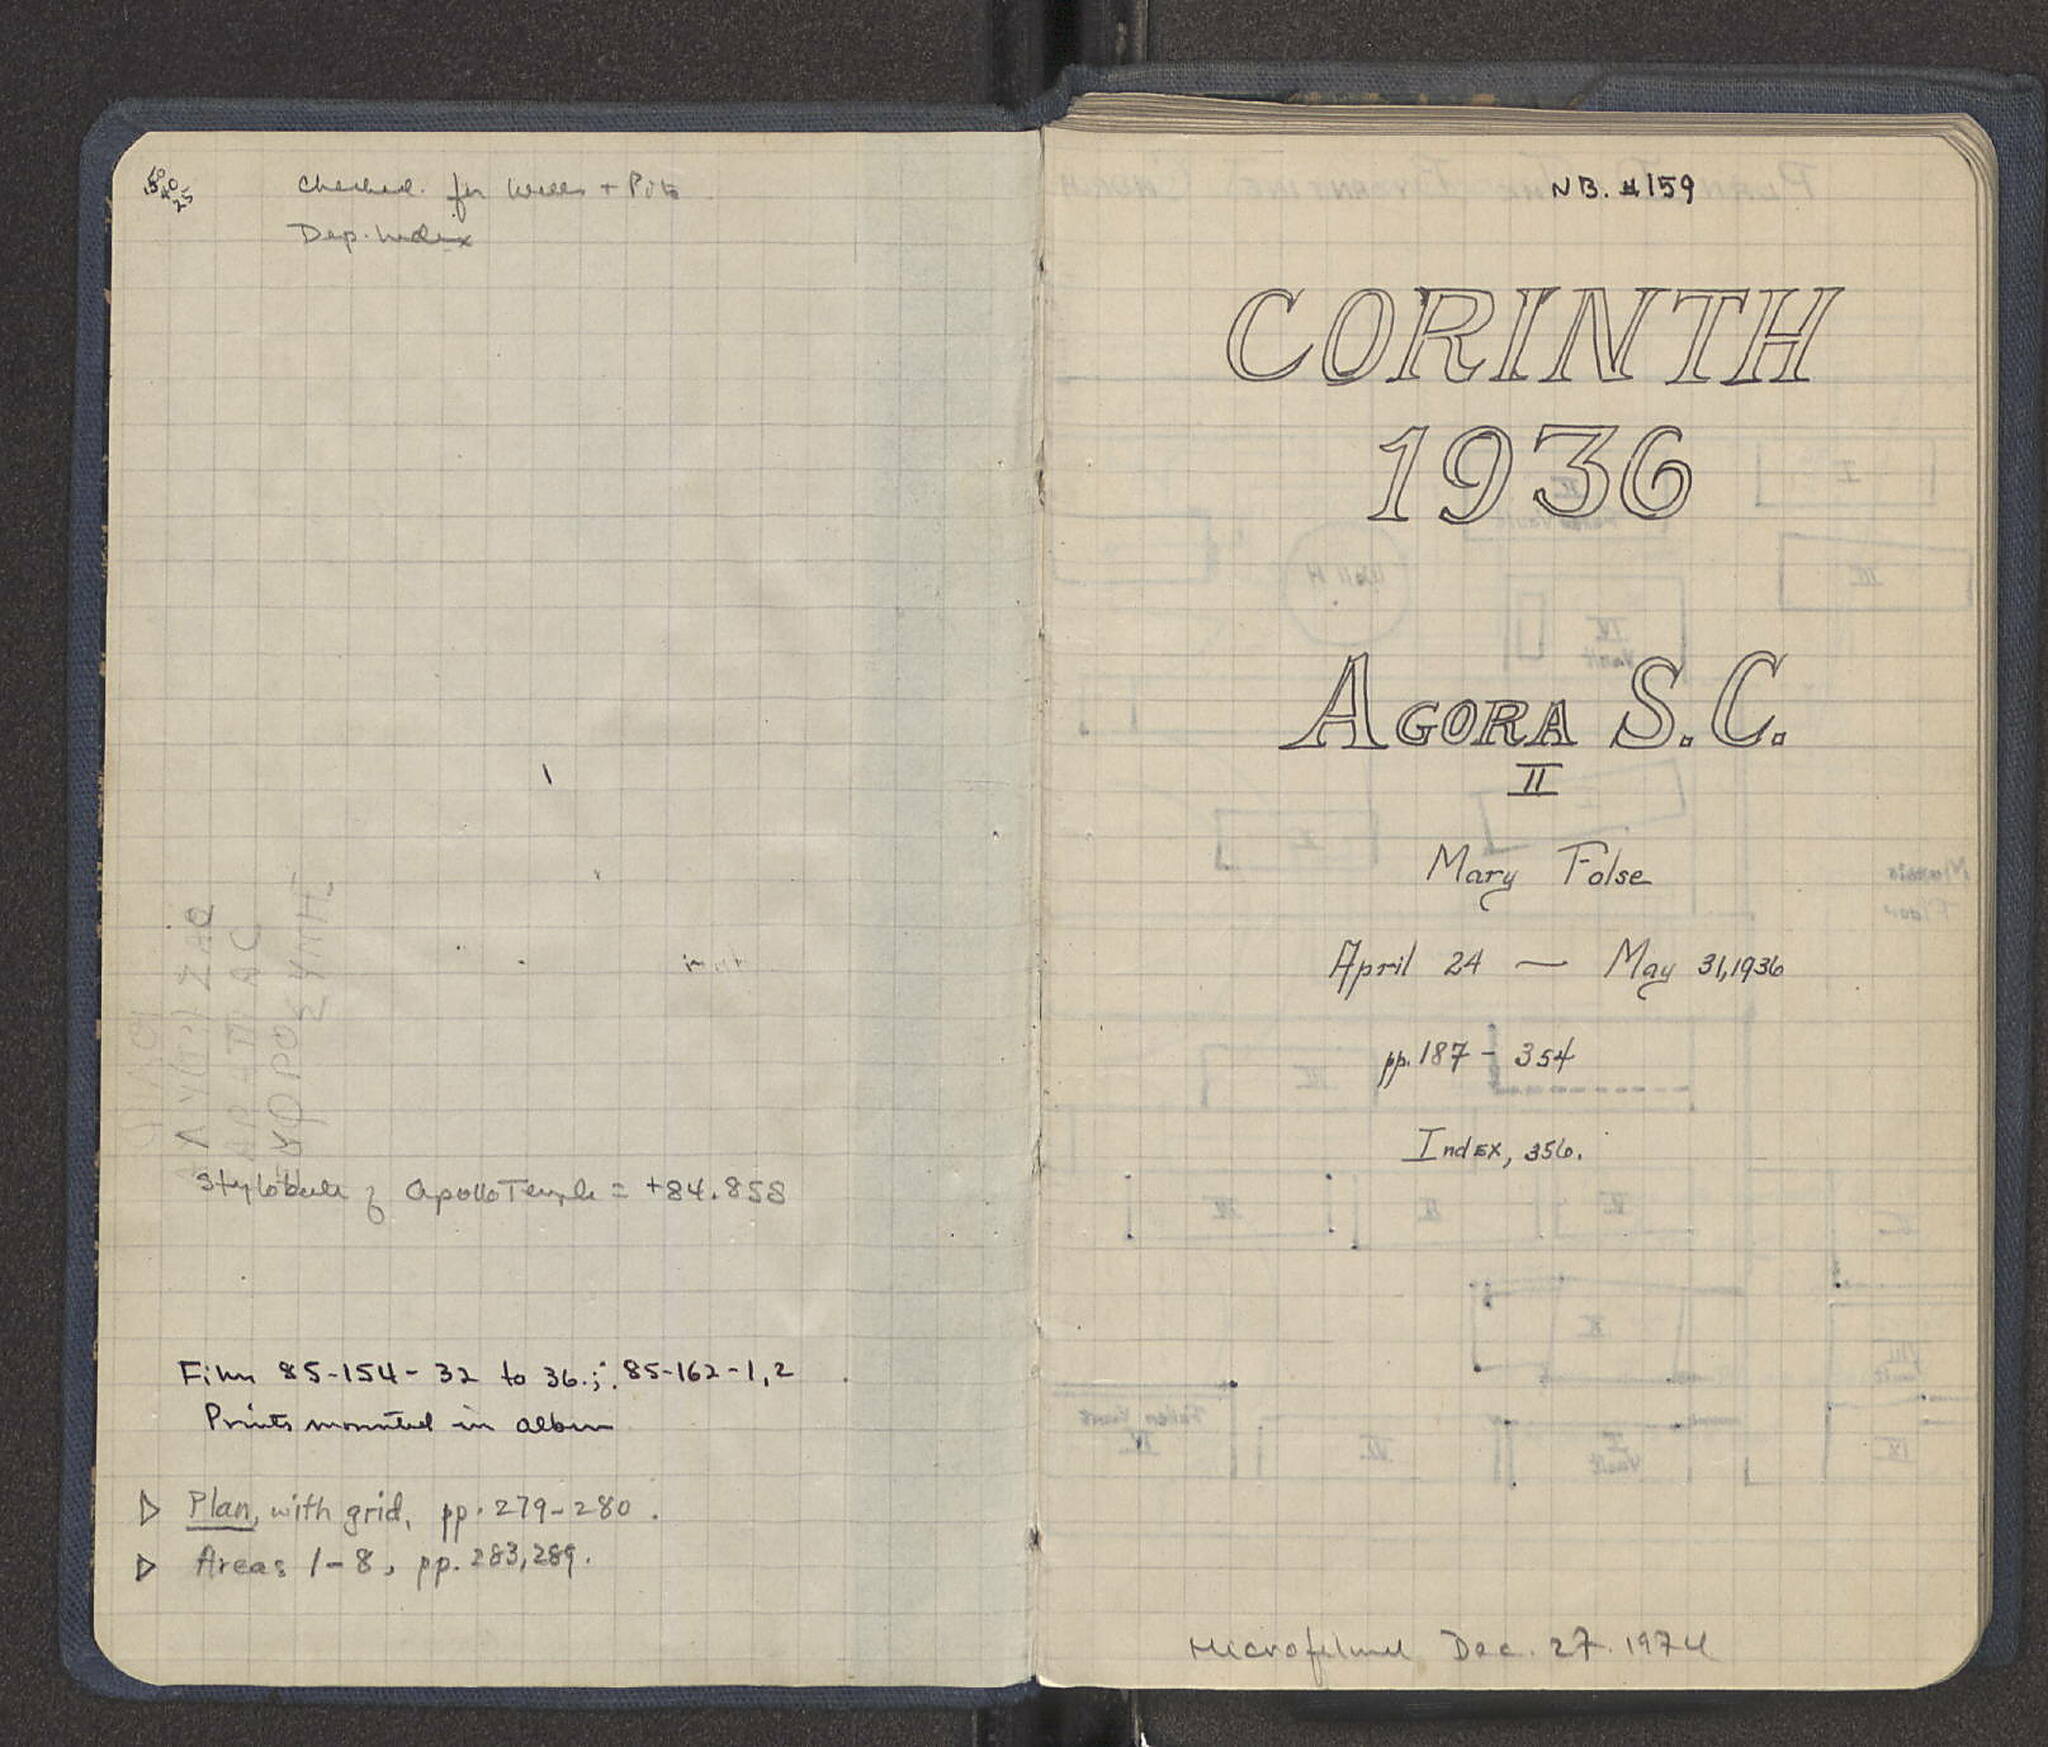 50
40
25
Checked for Wells + Pits
Dep. Index
Stylobate of Apollo Temple = +84.858
Film 85-154-32 to 36.; 85-162-1,2
Prints mounted in album
Plan, with grid, pp. 279-280.
Areas 1-8, pp. 283, 289.
NB. #159
CORINTH
1936
AGORA S.C.
II
Mary Folse
April 24 — May 31, 1936
pp. 187 - 354
Index, 356.
Microfilmed Dec. 27. 1974